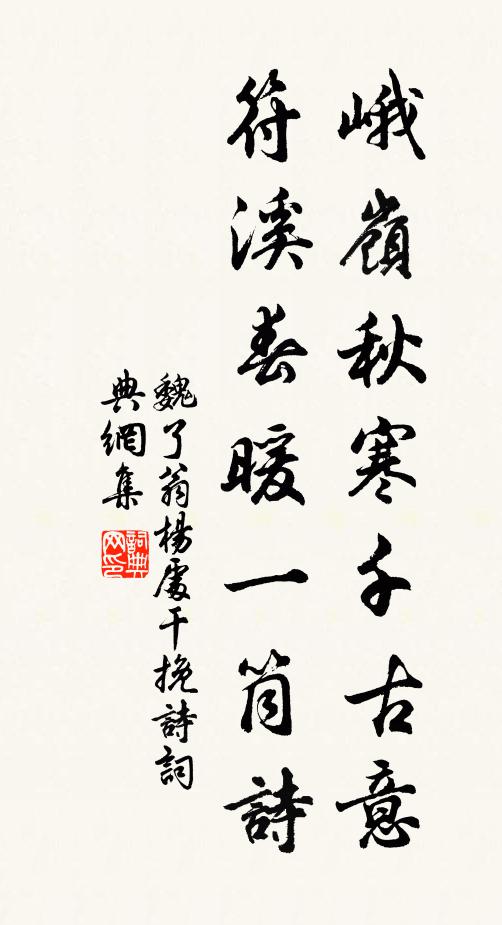 峨嶺秋寒千古意
符溪春暖一筒詩
魏了翁楊處干挽詩詞
典網集
詞典
网印